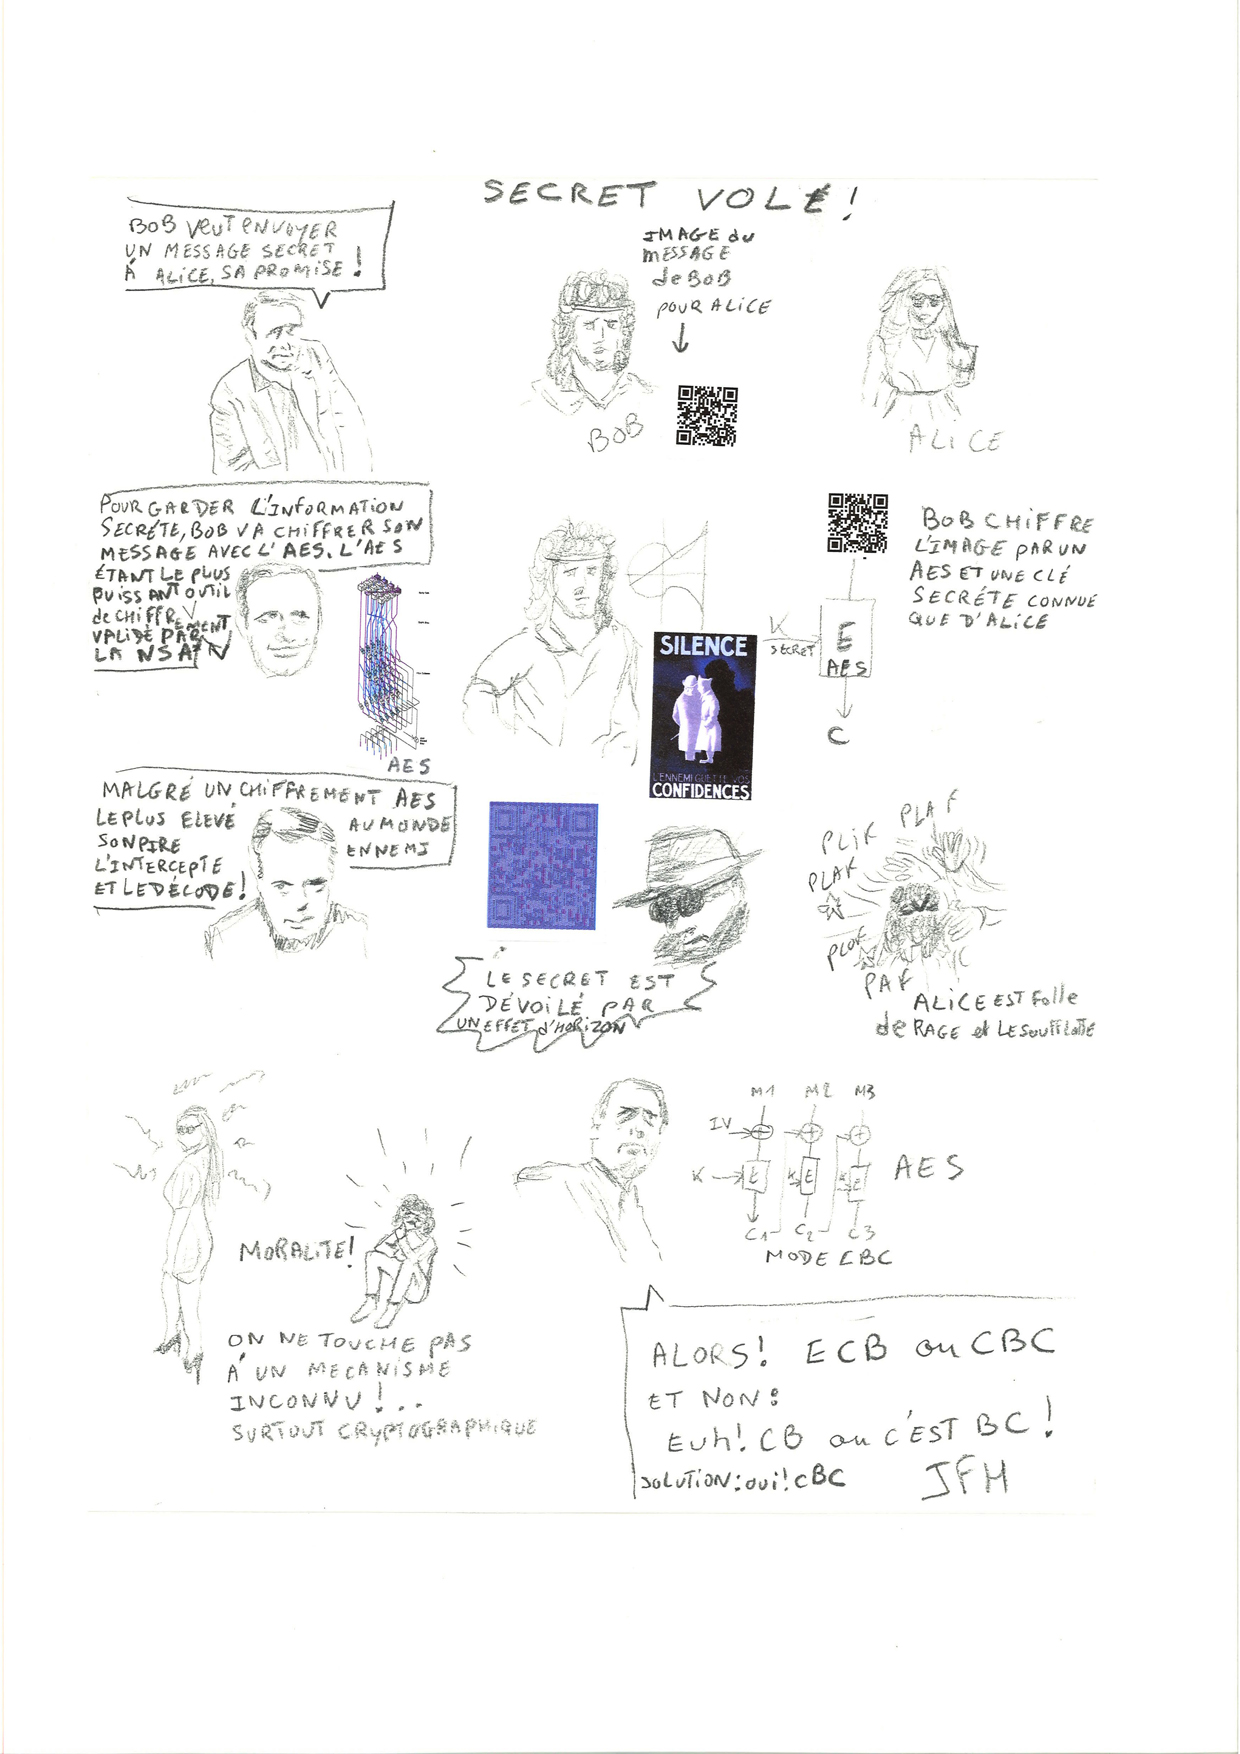 SECRET VOLÉ !
BOB VEUT ENVOYER
UN MESSAGE SECRET
À ALICE, SA PROMISE !
IMAGE du
MESSAGE
de BOB
POUR ALICE
BOB
ALICE
POUR GARDER L'INFORMATION
SECRÉTE, BOB VA CHIFFRER SON
MESSAGE AVEC L'AES. L'AES
ÉTANT LE PLUS
PUISSANT OUTIL
de CHIFFREMENT
VALIDÉ PAR
LA NSA
AES
SILENCE
L'ENNEMI GUETTE VOS
CONFIDENCES
K
SECRET
E
AES
C
BOB CHIFFRE
L'IMAGE PAR UN
AES ET UNE CLÉ
SECRÉTE CONNUE
QUE D'ALICE
MALGRÉ UN CHIFFREMENT AES
LE PLUS ELEVÉ AU MONDE
SON PIRE ENNEMI
L'INTERCEPTE
ET LE DÉCODE !
LE SECRET EST
DÉVOILÉ PAR
UN EFFET d'HORIZON
PLIF
PLAF
PLAF
PLOF
PAF
ALICE EST Folle
de RAGE et LE SOUFFLETTE
MORALITE !
ON NE TOUCHE PAS
À UN MECANISME
INCONNU ! . . .
SURTOUT CRYPTOGRAPHIQUE
M1 M2 M3
IV + + +
K E K E K E
AES
C1 C2 C3
MODE CBC
ALORS ! ECB ou CBC
ET NON :
Euh ! CB ou c'EST BC !
SOLUTION : oui ! CBC
JFH